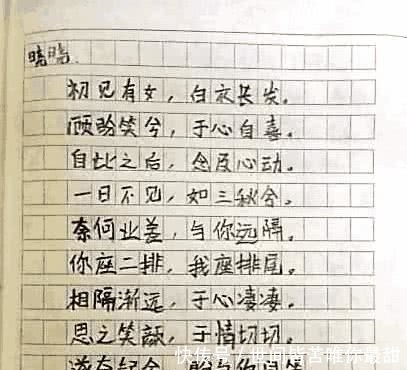 晓晓.
初见有女，白衣长发。
顾盼笑兮，于心自喜。
自此之后，念及心动。
一日不见，如三秋兮。
奈何业差，与你远隔。
你座二排，我座排尾。
相隔渐远，于心凄凄。
思之笑颜，于情切切。
快传号／世间皆苦唯你最甜